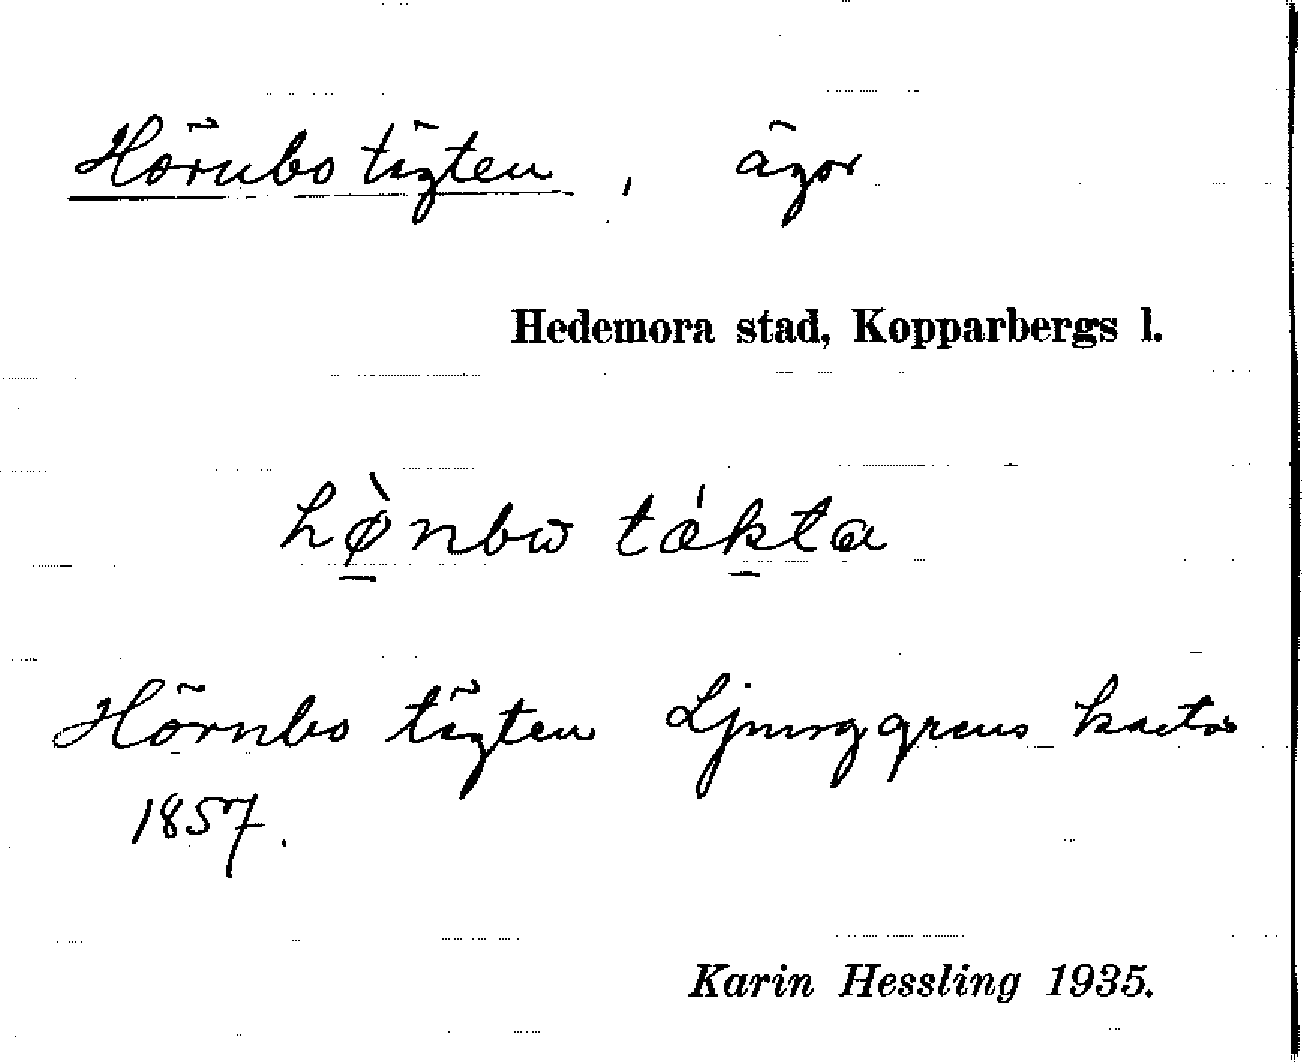 Hörnbo tägten, ägor
Hedemora stad, Kopparbergs l.
hø̀nbω tákta
Hörnbo tägten Ljunggrens karta
1857.
Karin Hessling 1935.